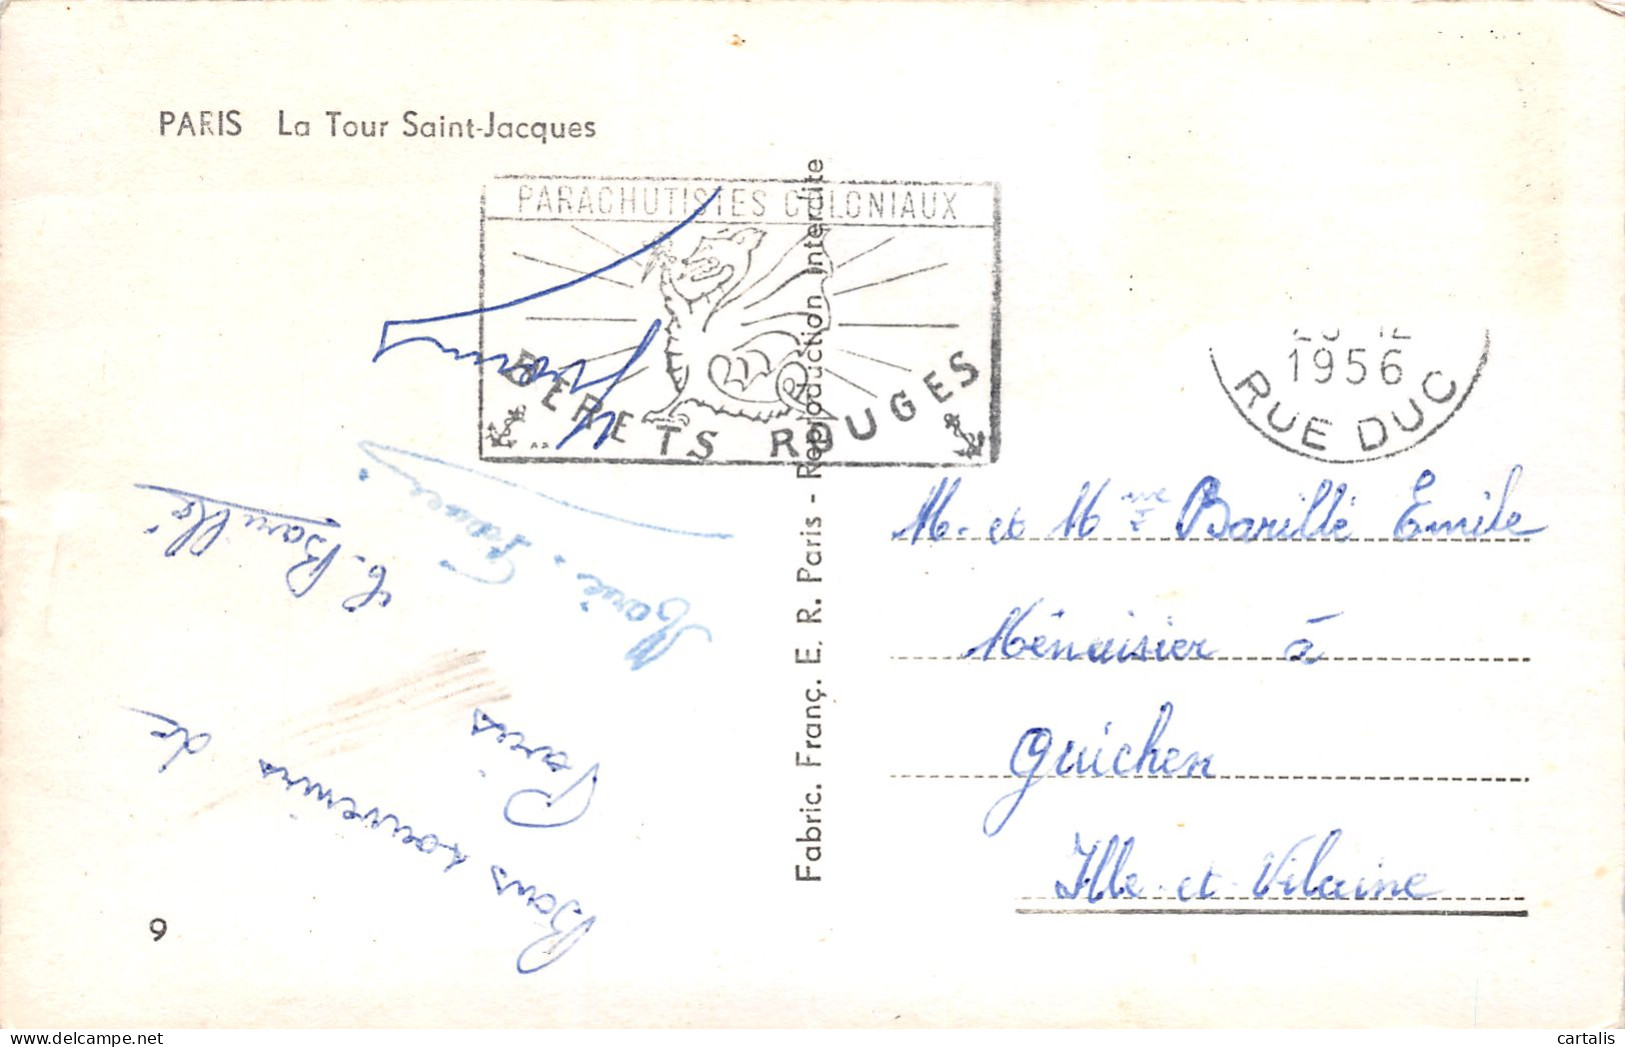 PARIS La Tour Saint-Jacques
PARACHUTISTES COLONIAUX
BERETS ROUGES
1956
RUE DUC
Bons souvenirs de
Paris
Barillé
Marie-
M. et Mme Barillé Emile
Ménuisier à
Guichen
Ille-et-Vilaine
Fabric. Franç. E. R. Paris - Reproduction Interdite
9
cartalis